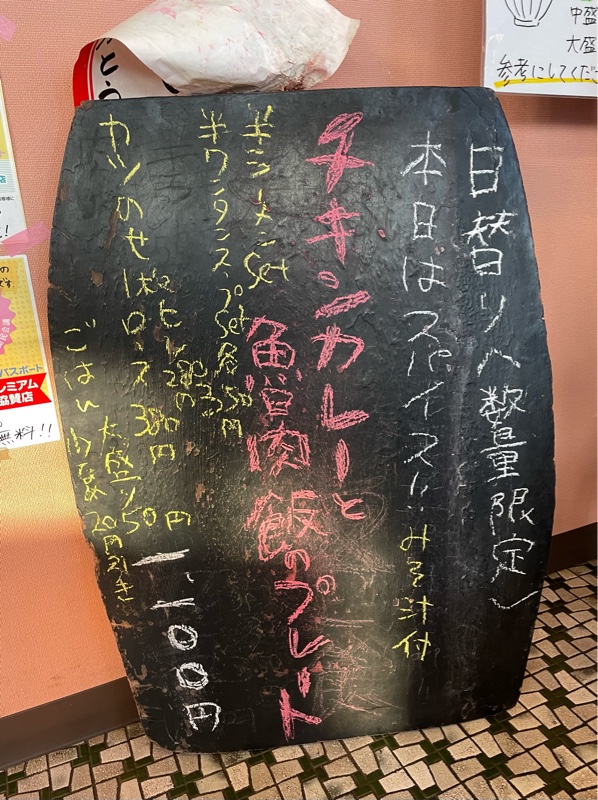 日替り(数量限定)
本日はスパイス!! みそ汁付
チキンカレーと
魯肉飯のプレート
1,100円
半ラーメンSet
半ワンタンスープSet 各350円
カツのせ
ヒレ 280円
ロース 380円
大盛り50円
ごはん少なめ 20円引き
中盛
大盛
参考にしてくだ
パスポート
レミアム
協賛店
無料!!